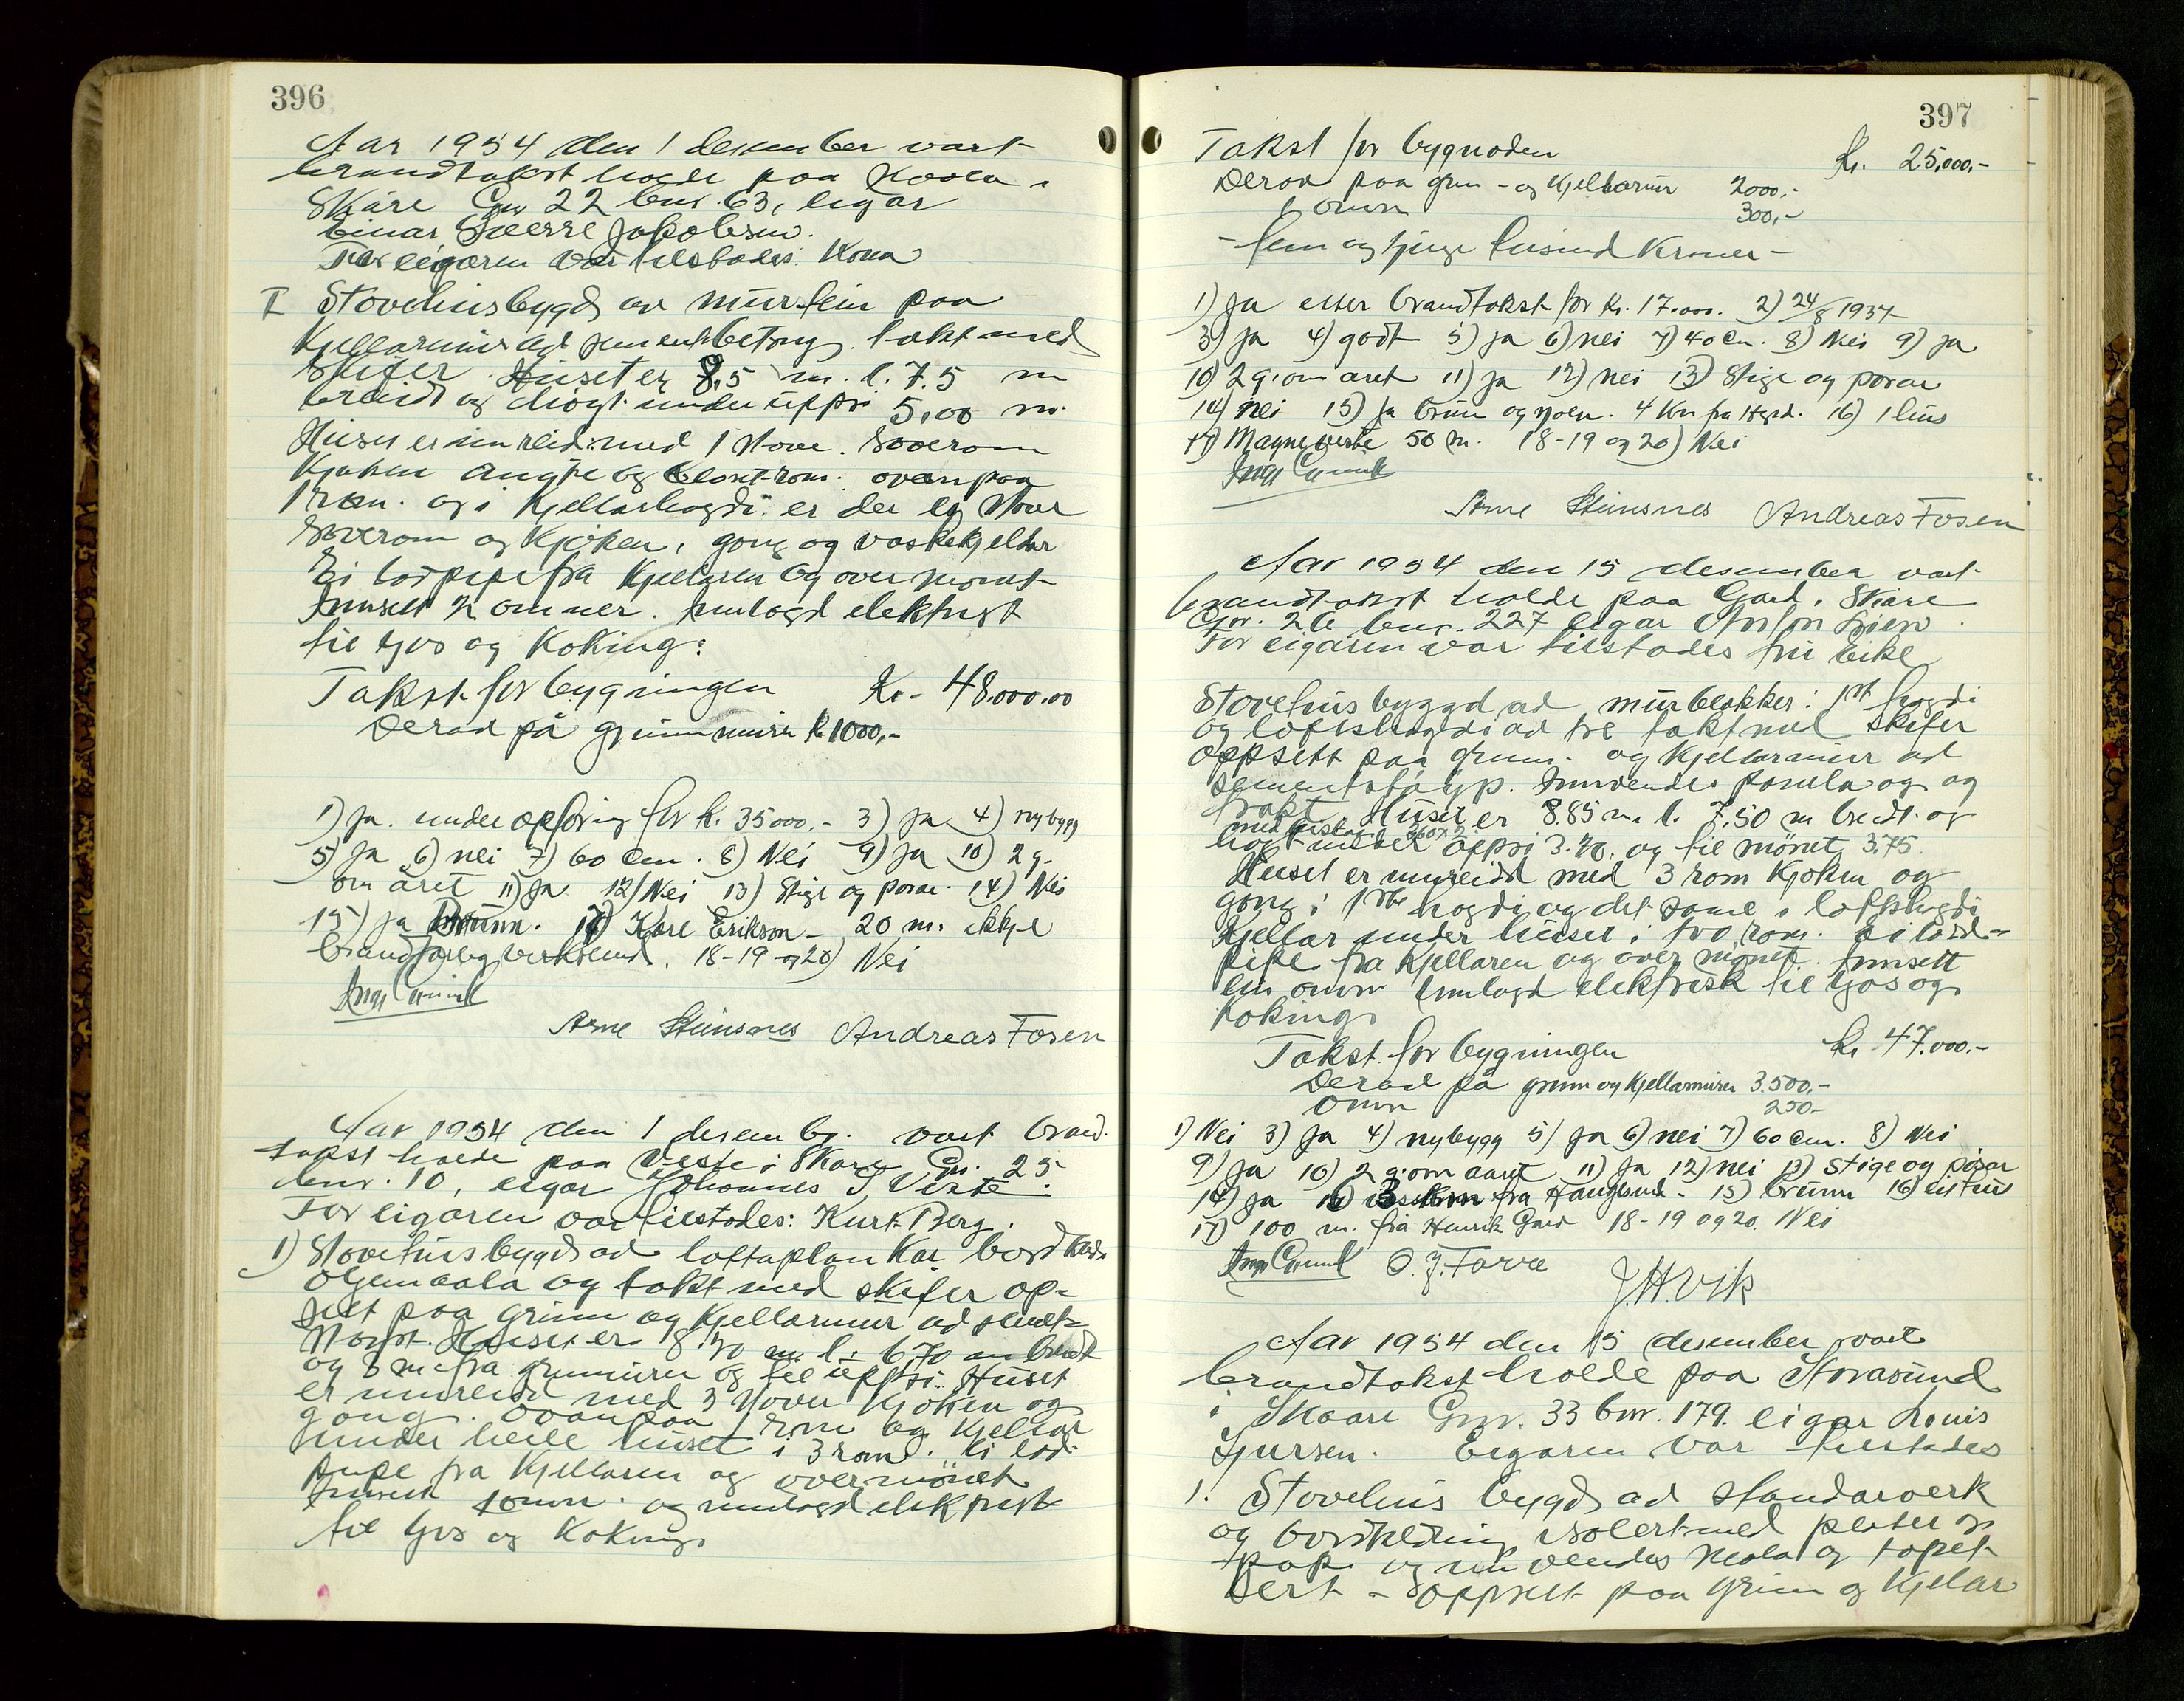 396
Aar 1954 den 1 desember vart
brandtakst holde paa
Skåre Gnr 22 bnr. 63, eigar
Einar Sverre Jakobsen.
For eigaren var tilstades: Kona
I Stovehus bygd av murstein paa
Kjellarmur af sementbetong. takt med
Skifer. Huset er 8,5 m. l. 7.5 m
breidt og høgt under uppsi 5,00 m.
Huset er innreid: med 1 stove. Soverom
Kjøken gang og Closet-rom. ovanpaa
1 rom. og i Kjellarhøgdi: er der ei stove
Soverom og Kjøken, gong og vaskekjellar
Ei lodpipe fra Kjellaren og over mønet
Innsett 2 omner. Innlagd elektrisk
til ljos og Koking:
Takst for bygningen Kr. 48.000.00
Derav på grunnmuren kr 1000,-
1) Ja. under opføring for kr. 35000.- 3) Ja 4) nybygg
5) Ja 6) nei 7) 60 cm. 8) Nei 9) Ja 10) 2 g.
om året 11) Ja 12) Nei 13) Stige og posar. 14) Nei
15) ja Brunn. 17) Kåre Erikson - 20 m. ikkje
brandfarleg verksemd. 18-19 og 20) Nei
Arne Steinsnes Andreas Fosen
Aar 1954 den 1 desembr. vart brand-
takst holde paa Veste i Skare Gnr. 25
bnr. 10, eigar Johannes S. Veste.
For eigaren var tilstades: Kurt Berg.
1) Stovehus bygd ad loftaplankar bordkledd
utvendes og takt med skifer op-
sett paa grunn og Kjellarmur ad sement-
støyp. Huset er 8.70 m. l. 6.70 m breidt
og 3 m fra grunnmuren og til uppsi. Huset
er innreidd med 3 stover Kjøken og
gang. Ovanpaa 1 rom og Kjellar
under heile huset i 3 rom. Ei lod-
pipe fra Kjellaren og over mønet
Innsett 1 omn. og innlagd elektrisk
til ljos og Koking
397
Takst for bygnaden Kr. 25.000,-
Derav paa grun- og Kjellarmur 2000,-
1 omn 300,-
- fem og tjuge tusund Kroner -
1) Ja etter brandtakst for Kr. 17.000. 2) 24/8 1937
3) Ja 4) godt 5) ja 6) nei 7) 40 cm. 8) Nei 9) ja
10) 2 g. om aret 11) ja 12) nei 13) Stige og posar
14) nei 15) Ja brunn og sjoen. 4 Km fra Hgsd. 16) 1 hus
17) Magne Veste 50 m. 18-19 og 20) Nei
Arne Steinsnes Andreas Fosen
Aar 1954 den 15 desember vart
brandtakst holde paa Gard i Skåre
Gnr. 26 bnr. 227 eigar Anton Lien.
For eigaren var tilstades fru Eike
Stovehus byggd ad murblokker: 1ste høgdi
og loftshøgdi ad tre takt med skifer
oppsett paa grunn- og Kjellarmur ad
sementstøyp. Innvendes panela og
trekt. Huset er 8.85 m. l. 7,50 m breidt og
høgt under uppsi 3.20. og til mønet 3.75.
Huset er innreidd med 3 rom Kjøken og
gong i 1ste høgdi og det same i loftshøgdi
Kjellar under huset i tvo rom. Ei lod-
pipe fra Kjellaren og over mønet. Innsett
ein omn Innlagd elektrisk til ljos og
koking
Takst for bygningen kr 47.000.-
Derav på grunn og Kjellarmuren 3.500,-
Omn 250-
1) Nei 3) Ja 4) nybygg 5) ja 6) nei 7) 60 cm. 8) Nei
9) Ja 10) 2 g. om aaret 11) Ja 12) nei 13) Stige og posar
14) Ja 3 km fra Haugesund - 15) brunn 16) eit hus
17) 100 m. frå Henrik Gard 18-19 og 20. Nei
O. J. Tarve J. H. Vik
Aar 1954 den 15 desember vart
brandtakst holde paa Storasund
i Skaare Gnr. 33 bnr. 179. eigar Louis
Sjursen. Eigaren var tilstades
1. Stovehus bygd ad standarverk
og bordkledning isolert med plater og
pap og innvendes mala og tapet-
sert - oppsett paa grunn og Kjelar